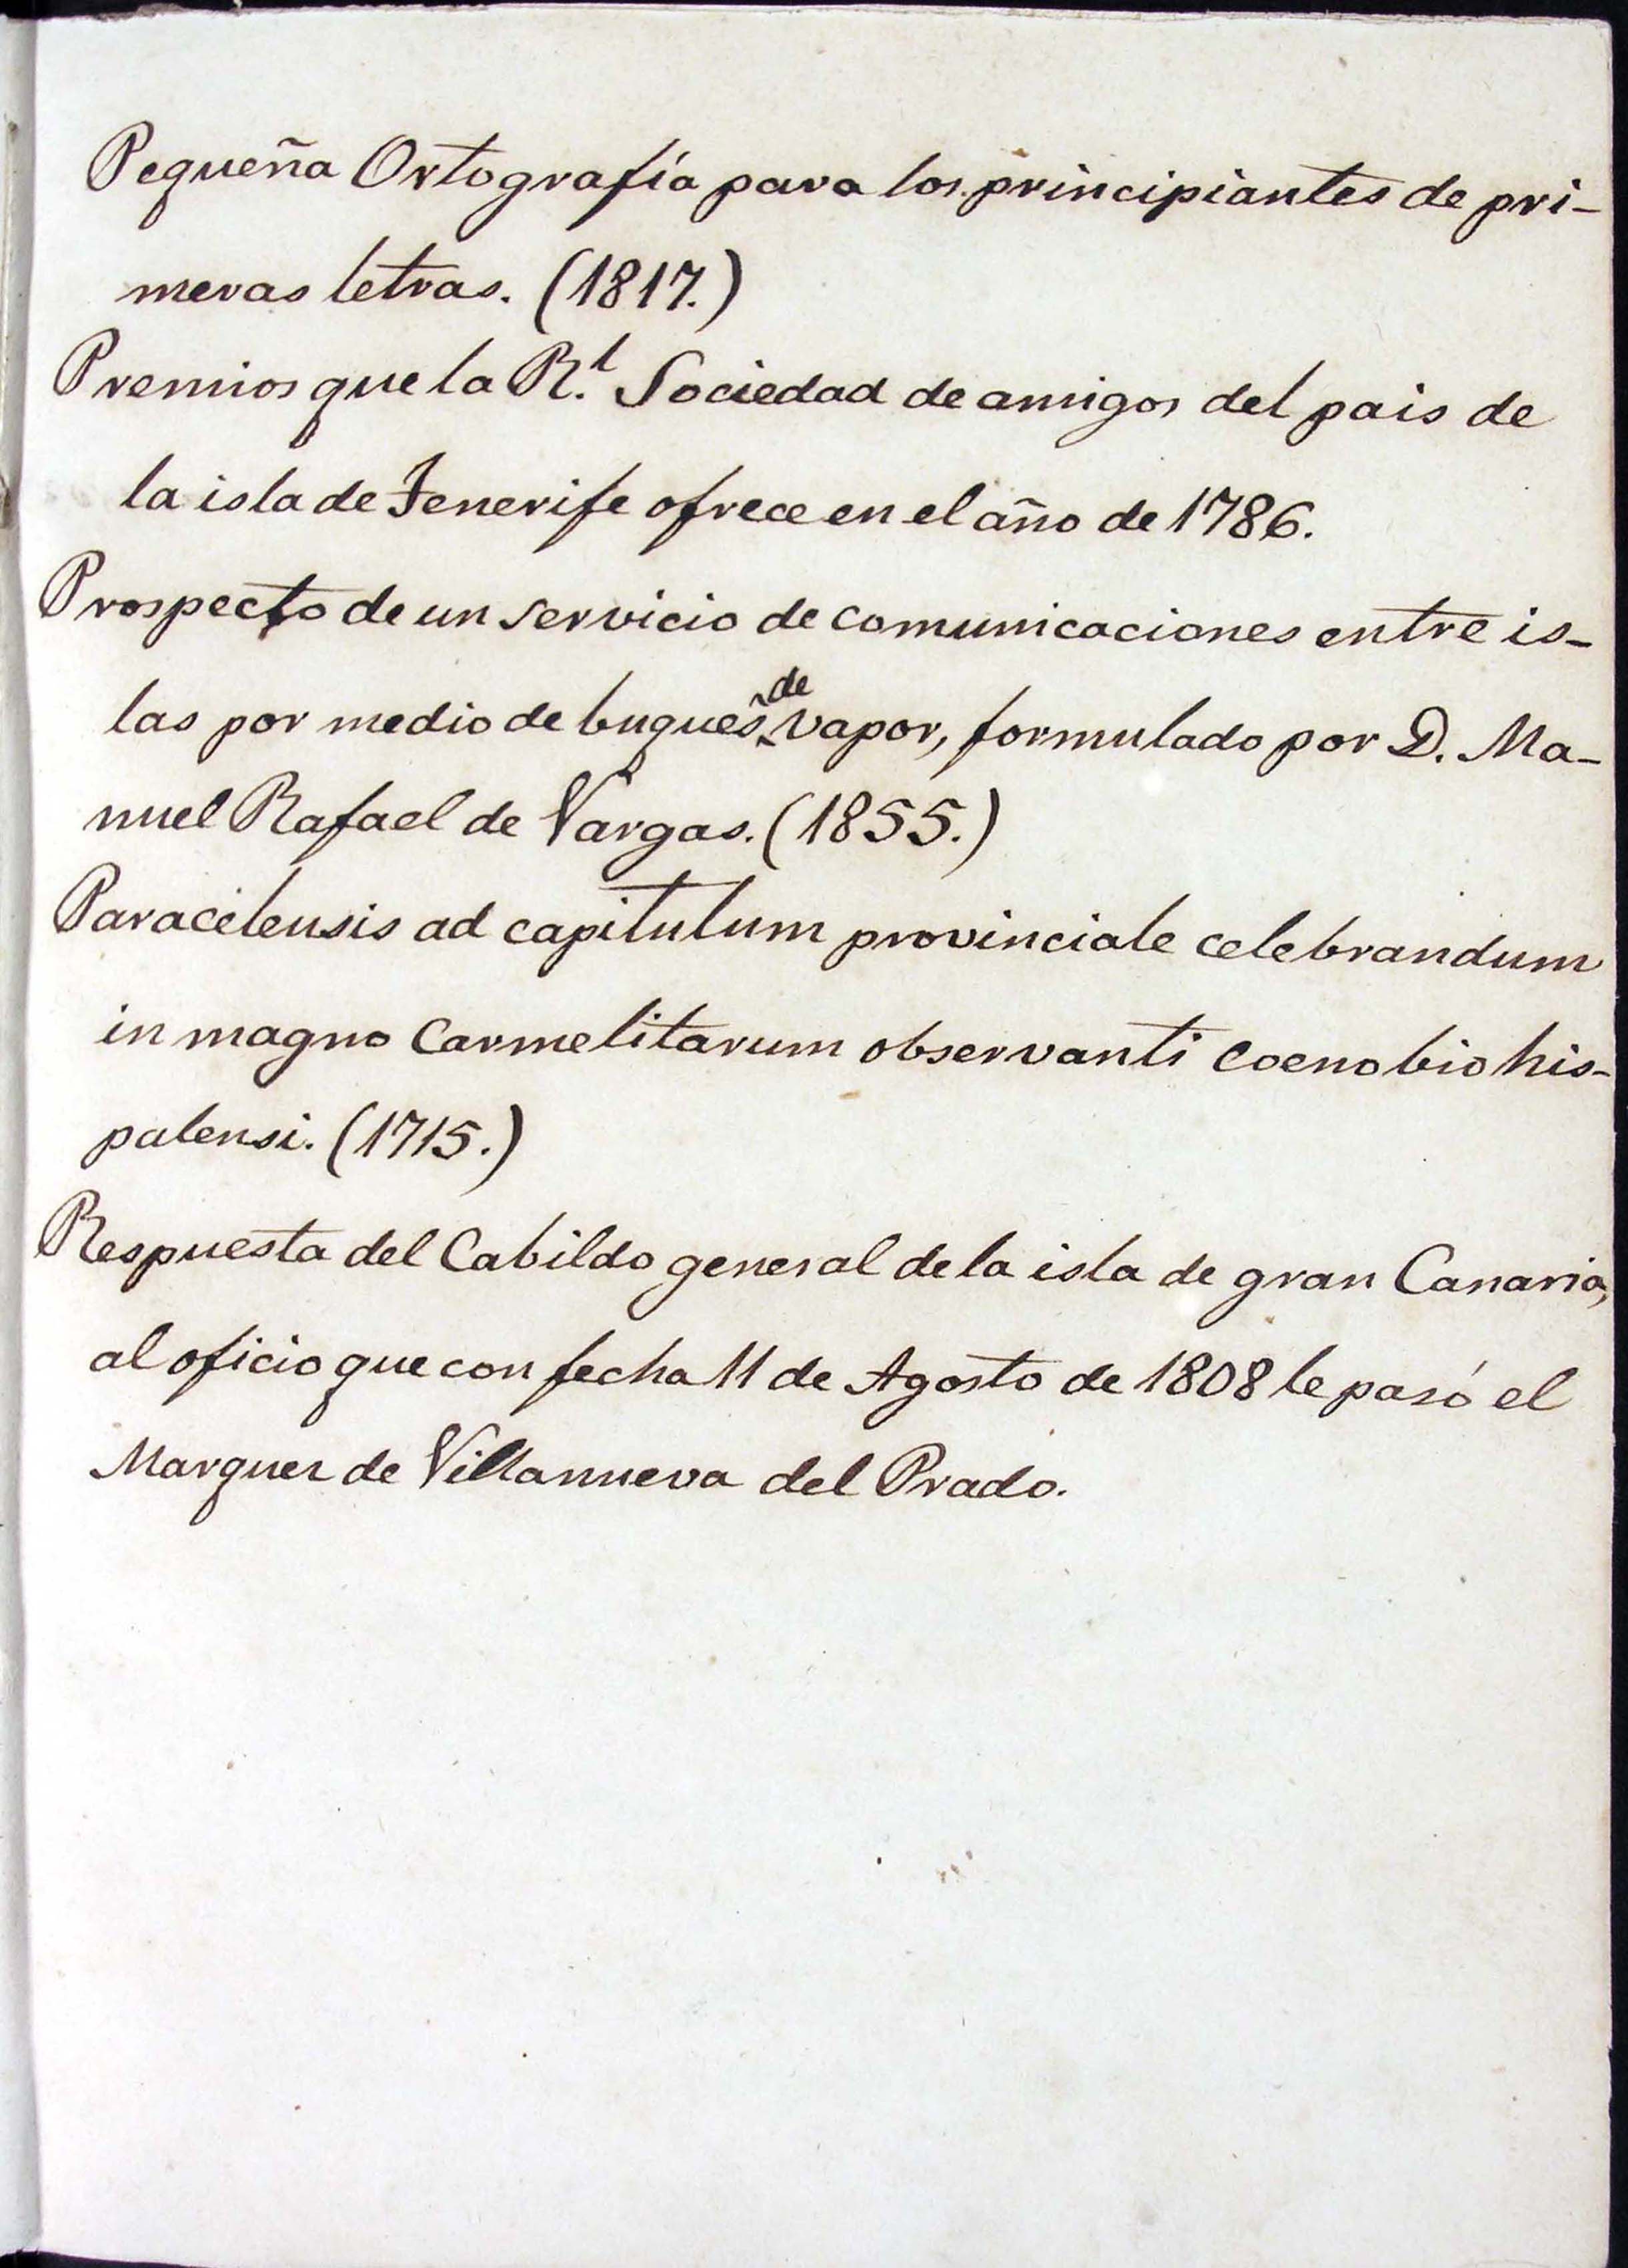 Pequeña Ortografía para los principiantes de pri-
meras letras. (1817.)
Premios que la R.l Sociedad de amigos del pais de
la isla de Tenerife ofrece en el año de 1786.
Prospecto de un servicio de comunicaciones entre is-
las por medio de buques de vapor, formulado por D. Ma-
nuel Rafael de Vargas. (1855.)
Paracelensis ad capitulum provinciale celebrandum
in magno Carmelitarum observanti coenobio his-
palensi. (1715.)
Respuesta del Cabildo general de la isla de gran Canaria,
al oficio que con fecha 11 de Agosto de 1808 le pasó el
Marquez de Villanueva del Prado.